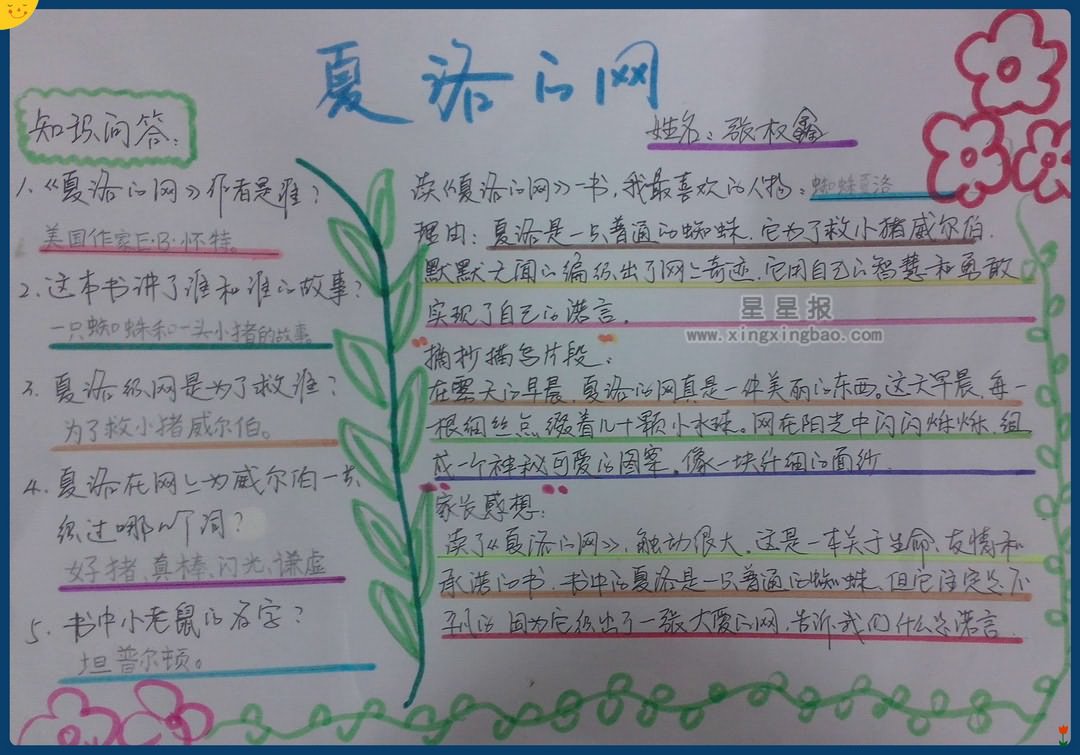 夏洛的网
姓名：张权鑫
知识问答：
1、《夏洛的网》作者是谁？
美国作家E·B·怀特。
2、这本书讲了谁和谁的故事？
一只蜘蛛和一头小猪的故事。
3、夏洛织网是为了救谁？
为了救小猪威尔伯。
4、夏洛在网上为威尔伯一共
织过哪几个词？
好猪、真棒、闪光、谦虚
5、书中小老鼠的名字？
坦普尔顿。
读《夏洛的网》一书，我最喜欢的人物：蜘蛛夏洛
理由：夏洛是一只普通的蜘蛛，它为了救小猪威尔伯，
默默无闻的编织出了网上奇迹，它用自己的智慧和勇敢
实现了自己的诺言。
星星报
www.xingxingbao.com
摘抄描写片段：
在雾天的早晨，夏洛的网真是一件美丽的东西。这天早晨，每一
根细丝点缀着几十颗小水珠。网在阳光中闪闪烁烁，组
成一个神秘可爱的图案，像一块纤细的面纱。
家长感想：
读了《夏洛的网》，触动很大，这是一本关于生命、友情和
承诺的书，书中的夏洛是一只普通的蜘蛛，但它注定是不
平凡的，因为它织出了一张大爱的网，告诉我们什么是诺言。